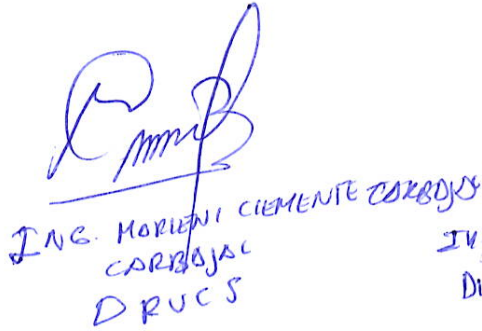 ING. MORIENI CLEMENTE CARBAJAL
CARBAJAL
DRUCS